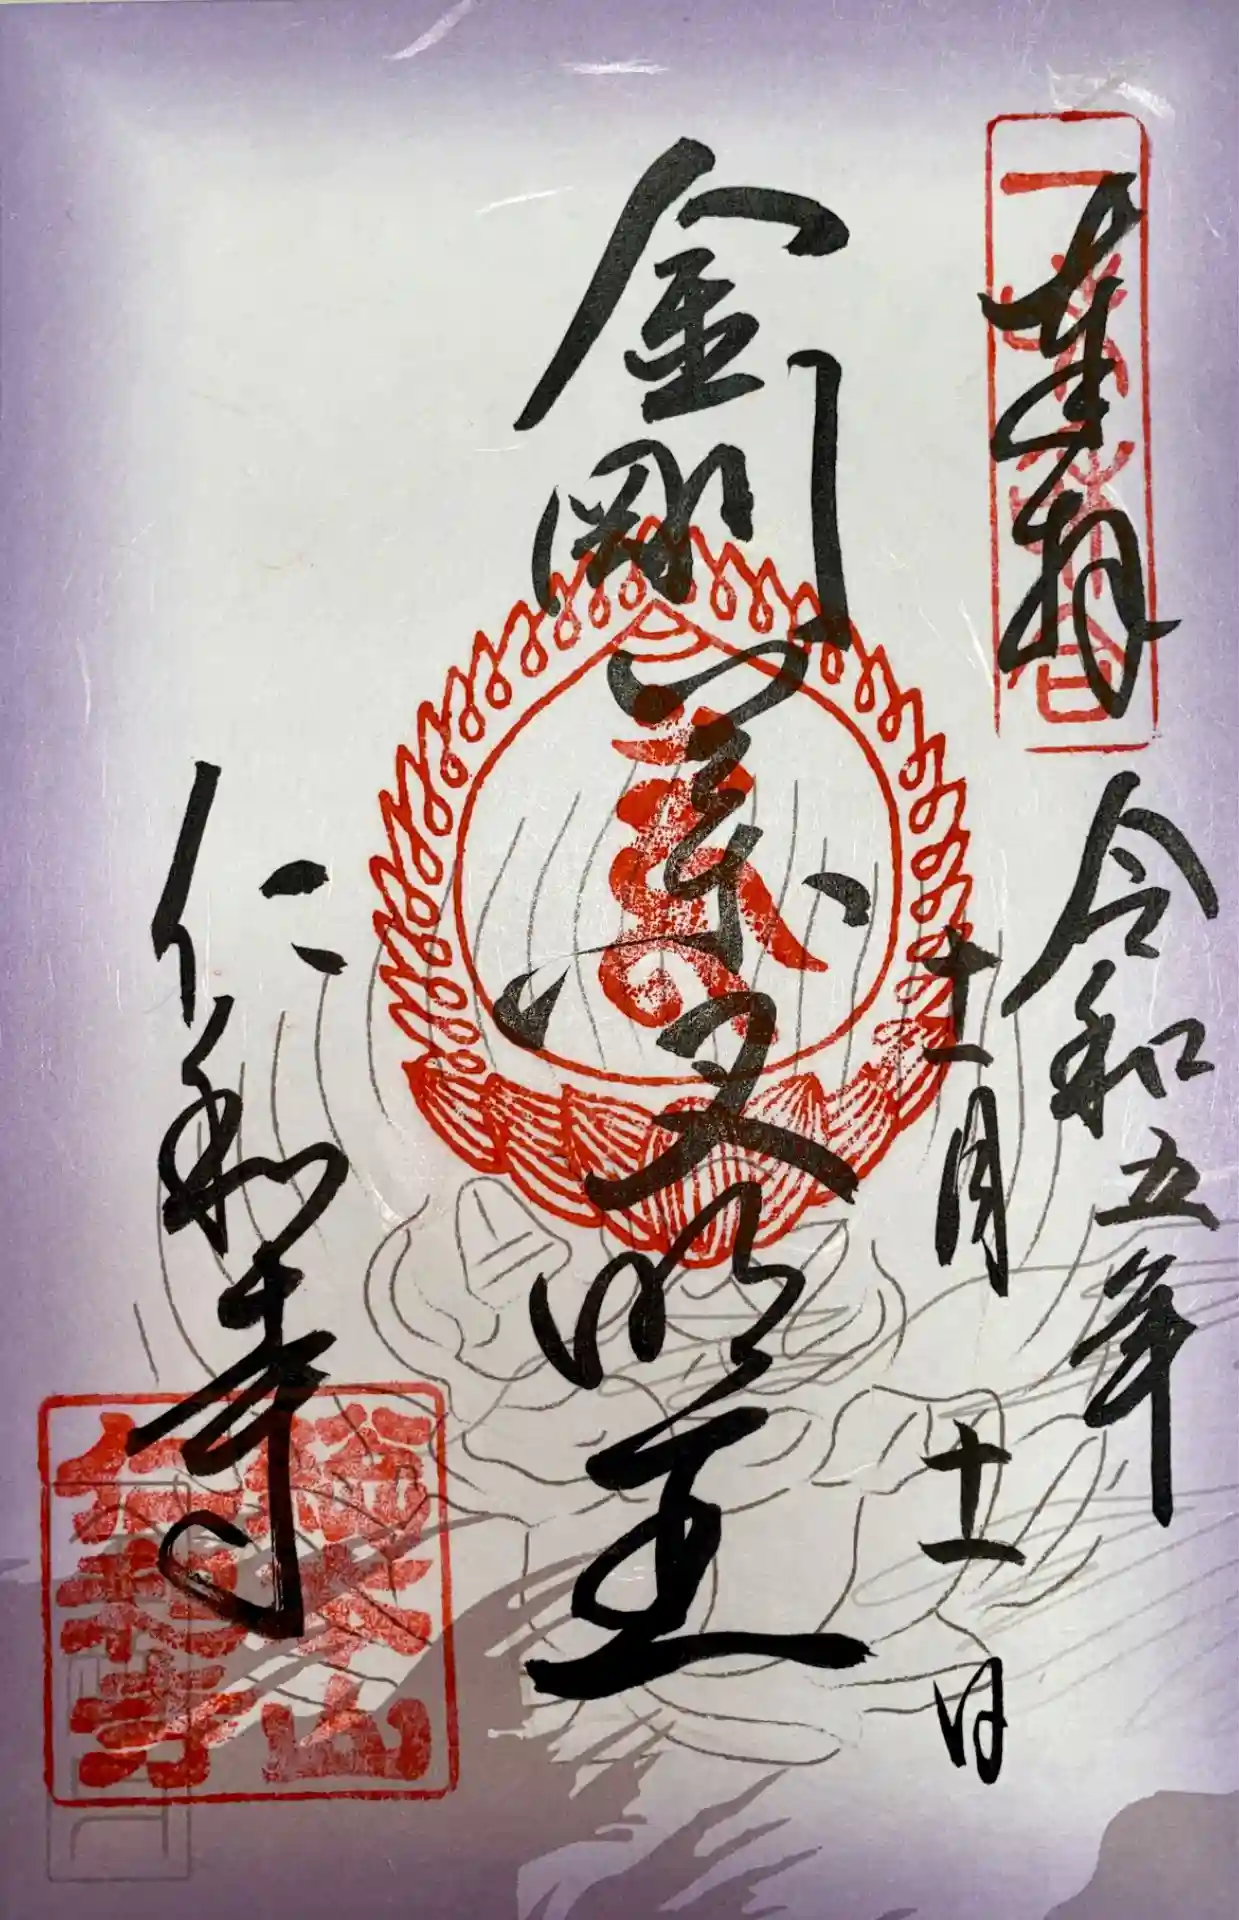 奉拝
令和五年
十一月十一日
金剛薬叉明王
仁和寺
総本山
仁和寺